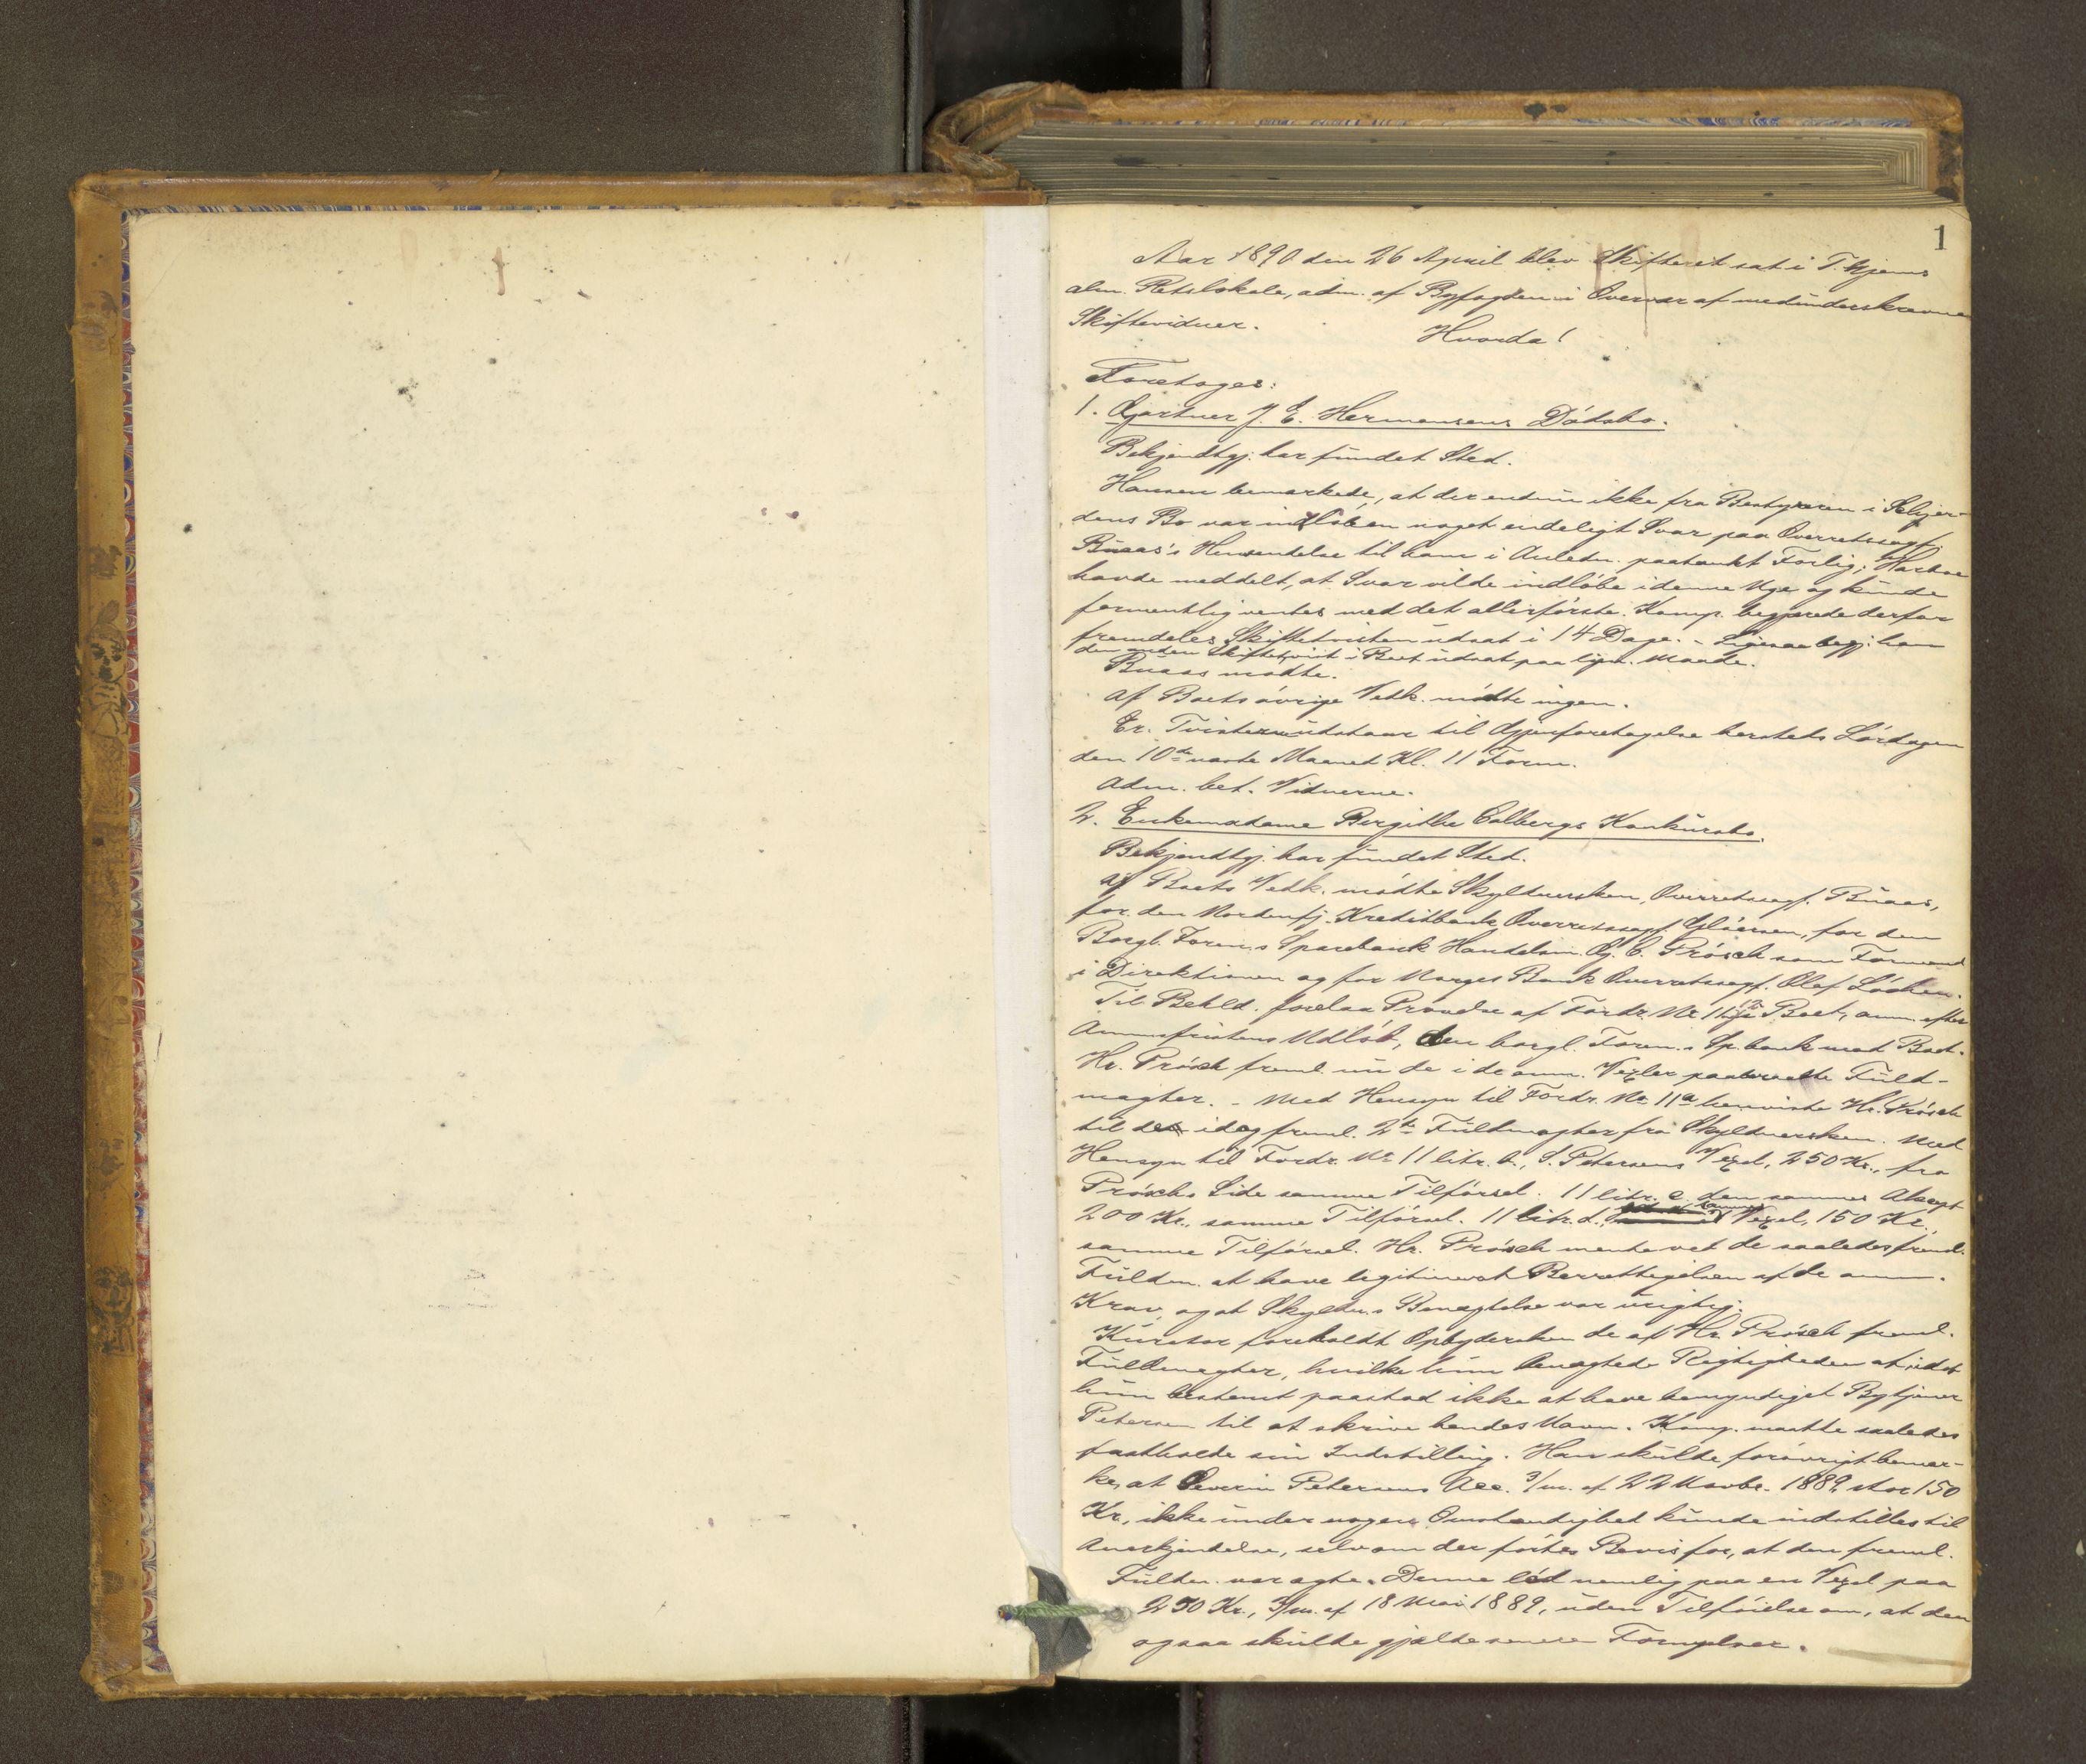 1
Aar 1890 den 26 April blev Skifteret sat i T.hjems
alm. Retslokale, adm. af Byfogden i Overvær af medunderskrevne
Skiftevidner.
Hvorda!
Foretoges:
1. Gjartner J. E. Hermansens Dødsbo.
Bekjendtgj. har fundet Sted.
Hansen bemærkede, at der endnu ikke fra Bestyreren i Schjer-
dens Bo var indløben noget endeligt Svar paa Overretssagf.
Buaas's Henvendelse til ham i Anledn. paatænkt Forlig;
havde meddelt, at Svar vilde indløbe i denne Uge og kunde
formentlig ventes med det allerførste. Komp. begjærede derfor
fremdeles Skiftetvisten udsat i 14 Dage. - Ligesaa begj. han
den anden Skiftetvist i Boet udsat paa lign. Maade.
Buaas mødte.
Af Boets øvrige Vedk. mødte ingen.
Er. Tvisterne udstaar til Gjenforetagelse hersteds Lørdagen
den 10de næste Maaned Kl. 11 Form.
Adm. bet. Vidnerne.
2. Enkemadame Birgithe Colbergs Konkursbo.
Bekjendtgj. har fundet Sted.
Af Boets Vedk. mødte Skyldnersken, Overretssagf. Buaas,
for den Nordenfj. Kreditbank Overretssagf. Gløersen, for den
Borgl. Foren.s Sparebank Handelsm. Og. C. Prøsch som Formand
i Direktionen og for Norges Bank Overretssagf. Olaf Løchen.
Til Behld. forelaa Prøvelse af Fordr. No 11 i Boet, anm. efter
Anmelfristens Udløb, den borgl. Foren.s Sp.bank mod Boet.
Hr. Prøsch freml. nu de i de anm. Vexler paaberaabte Fuld-
magter. - Med Hensyn til Fordr. No 11a henviste Hr. Prøsch
til de idag freml. 2de Fuldmagter fra Skyldnersken. Med
Hensyn til Fordr. No 11 litr. b., S. Petersens Vexel, 250 Kr., fra
Prøschs Side samme Tilførsel. 11 litr. c. den sammes Aksept
200 Kr., samme Tilførsel. 11 litr. d. Vexel, 150 Kr.,
samme Tilførsel. Hr. Prøsch mente ved de saaledes freml.
Fuldm. at have legitimeret Berettigelsen af de anm.
Krav, og at Skyldn.s Benægtelse var urigtig.
Kurator foreholdt Opbydersken de af Hr. Prøsch freml.
Fuldmagter, hvilke hun benægtede Rigtigheden af, idet
hun bestemt paastod ikke at have bemyndiget Bytjener
Petersen til at skrive hendes Navn. Komp. maatte saaledes
fastholde sin Indstilling. Han skulde forøvrigt bemær-
ke, at Severin Petersens Acc. 3/m. af 22 Novbr. 1889 stor 150
Kr., ikke under nogen Omstændighed kunde indstilles til
Anerkjendelse, selv om der førtes Bevis for, at den freml.
Fuldm. var ægte. Denne lød nemlig paa en Vexel paa
250 Kr., 3/m. af 18 Mai 1889, uden Tilføielse om, at den
ogsaa skulde gjælde senere Fornyelser.